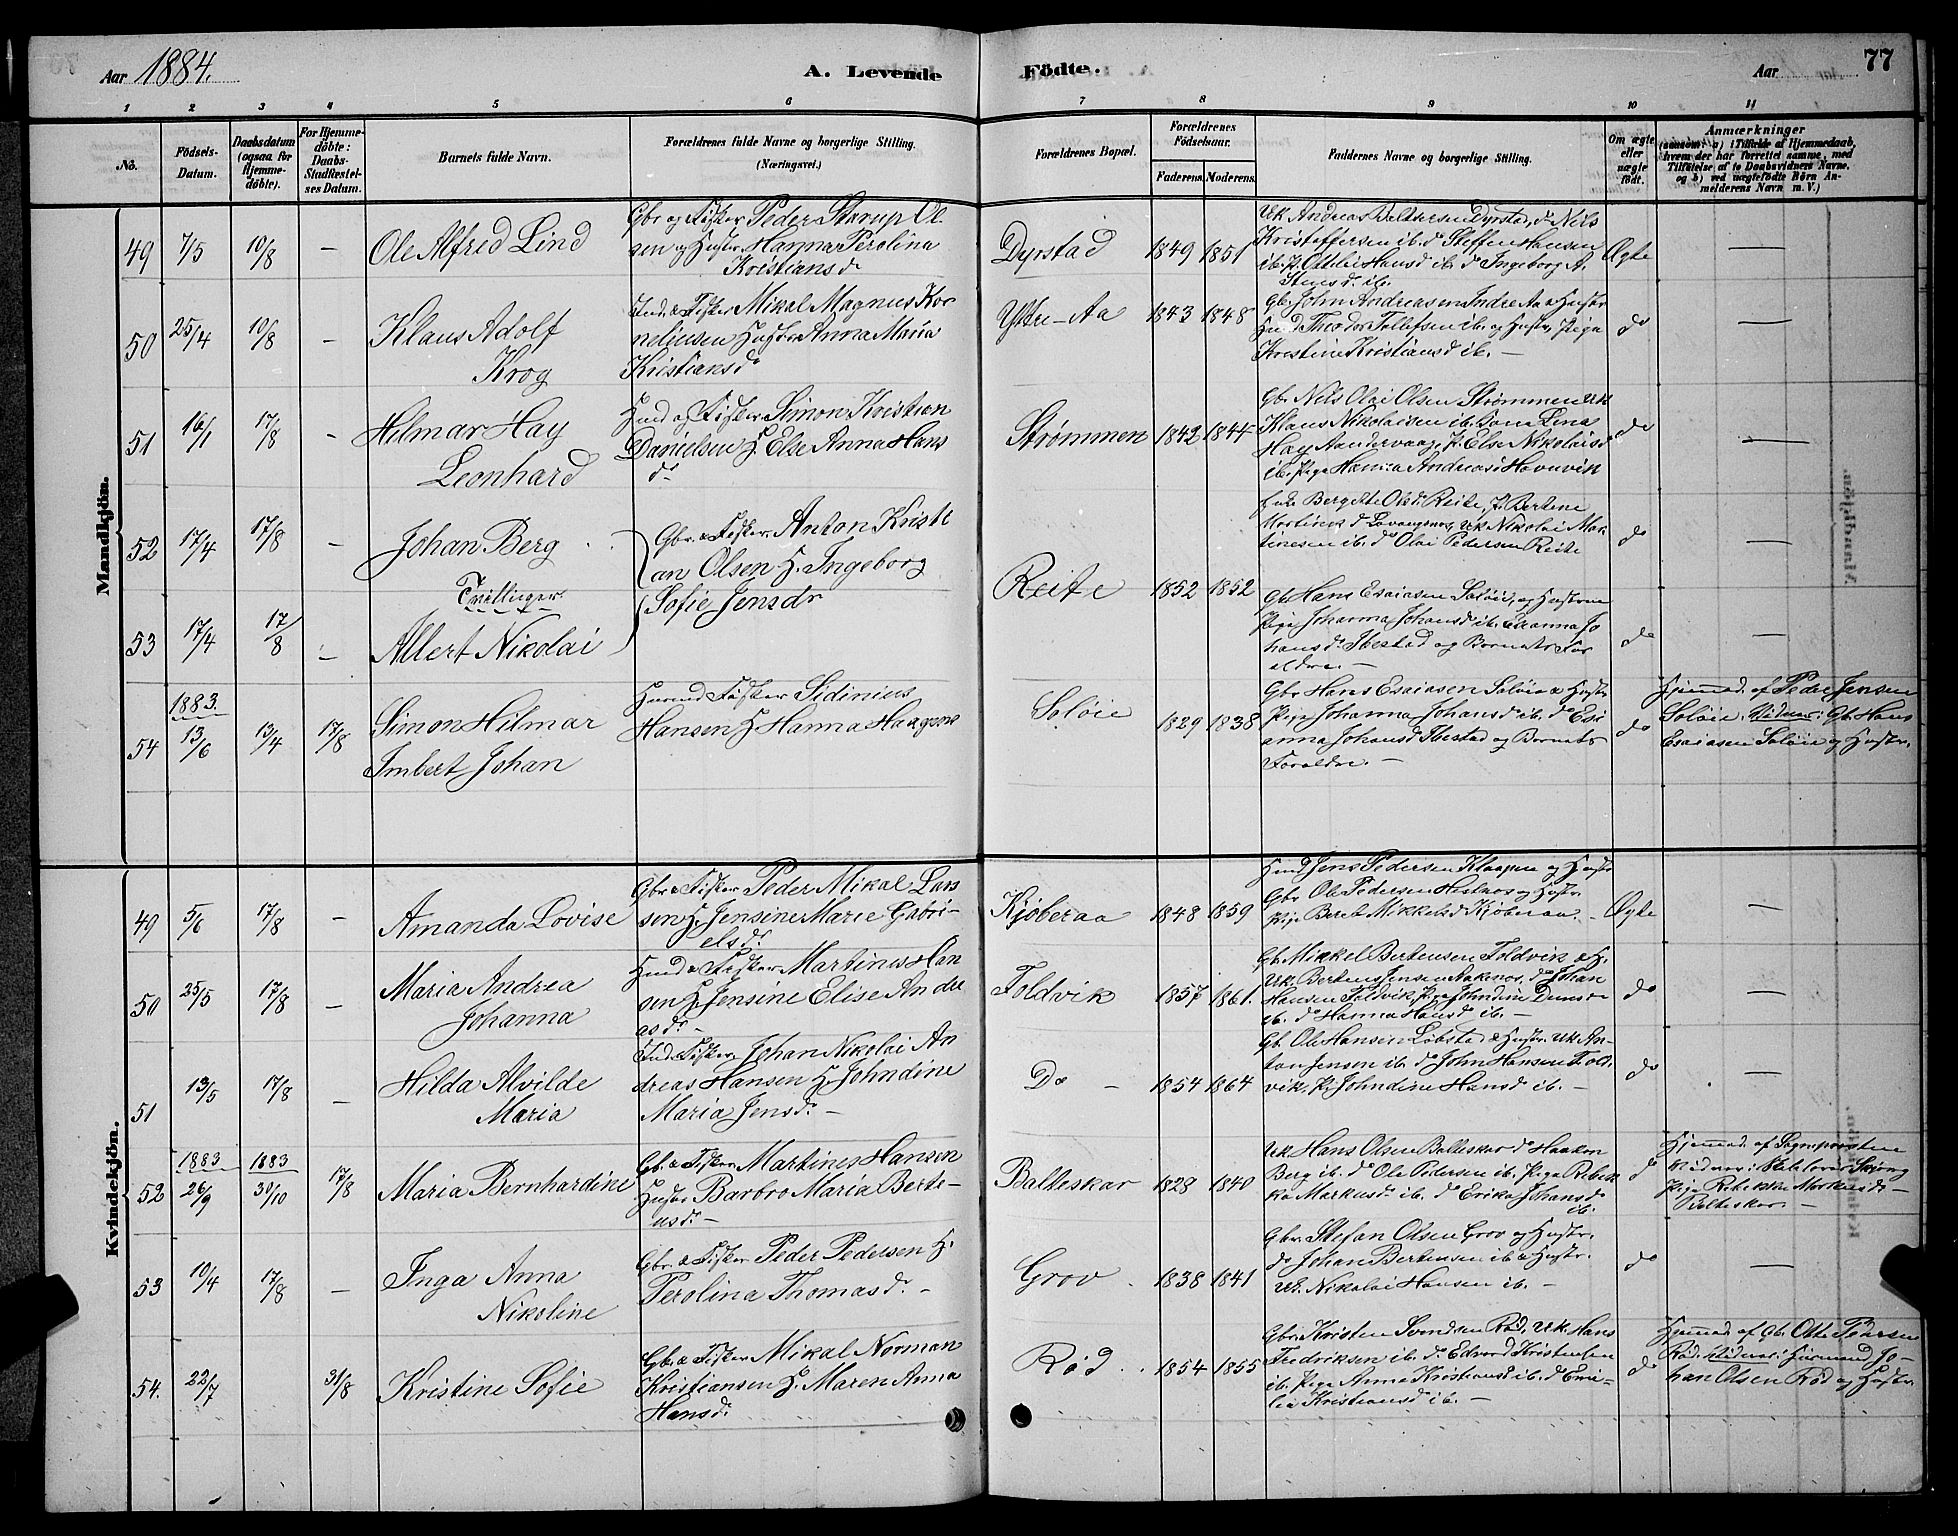 Aar 1884.
A. Levende
Födte.
Aar
77
1 2 3 4 5 6 7 8 9 10 11
No.
Födsels-
Datum.
Daabsdatum
(ogsaa for
Hjemme-
döbte).
For Hjemme-
döbte:
Daabs-
Stadfæstel-
ses Datum.
Barnets fulde Navn.
Forældrenes fulde Navne og borgerlige Stilling.
(Næringsvei.)
Forældrenes Bopæl.
Forældrenes
Födselsaar.
Faderens. Moderens.
Faddernes Navne og borgerlige Stilling.
Om ægte
eller
uægte
födt.
Anmærkninger
(saasom: a) i Tilfælde af Hjemmedaab,
hvem der har forrettet samme, med
Tilföielse af to Daabsvidners Navne,
og b) ved uægtefödte Börn An-
melderens Navn m. V.)
Mandkjön.
49 7/5 10/8 – Ole Alfred Lind
Gbr og Fisker Peder Storup Ol-
sen og Hustr. Hanna Perolina
Kristiansd
Dyrstad 1849 1851
Uk Andreas Baltsersen Dyrstad, do Nils
Kristoffersen ib. do Steffen Hansen
ib. P. Ottelie Hansd ib. do Ingeborg A.
Stensd. ib.
Ægte —
50 25/4 10/8 – Klaus Adolf
Krog
Ind. & Fisker Mikal Magnus Kor
neliussen Hustr Anna Maria
Kristiansdr
Yttre-Aa 1843 1848
Gb. John Andreasen Indre Aa & Hustr
Hmd Theodor Tollefsen ib. og Hustr, Piga
Kristine Kristiansd ib. –
do —
51 16/1 17/8 – Hilmar Hay
Leonhard
Hmd og Fisker Simon Kristian
Danielsen H. Else Anna Hans
dr
Strømmen 1842 1844
Gbr Nils Olai Olsen Strømmen Uk
Klaus Nikolaisen ib. Lina
Hay Aandervaag, P. Else Nikolaisd
ib. Piga Hanna Andreasd Havnvik
do —
52 17/4 17/8 – Johan Berg
Tvillinger
Gbr. & Fisker Anton Kristi
an Olsen H. Ingeborg
Sofie Jensdr
Reite 1852 1852
Bergitte Olsd. Reite, P. Bertine
Martinusd Lavangsnæs, Uk Nikolai Mar
tinesen ib. do Olai Pedersen Reite
do —
53 17/4 17/8 – Albert Nikolai
Gb Hans Esaiasen Soløie, og Hustrue
Piga Johanna Johansd ib. Esianna Jo
hansd. Ibestad og Barnets For
eldre. –
do —
1883.
54 13/6 13/4 17/8 Simon Hilmar
Imbert Johan
Fisker Sidinius
Hansen H Hanna Haagens
Soløie 1829 1838
Gbr Hans Esaiasen Soløie & Hustr
Piga Johanna Johansd ib. do Esi
anna Johansd Ibestad og Barnets
Foreldre. –
do
Hjemmed. af Peder Jensen
Soløie. Vidner: Gb. Hans
Esaiasen Soløie og Hustr.
Kvindekjön.
49 5/6 17/8 – Amanda Lovise
Gbr & Fisker Peder Mikal Lar
sen H. Jensine Marie Gabri-
elsd.
Kjøberaa 1848 1859
Hmd Jens Pedersen og Hustr
Gbr. Ole Pedersen og Hustr.
Piga Berit Mikkelsd Kjøberaa. –
Ægte —
50 25/5 17/8 – Maria Andrea
Johanna
Hmd & Fisker Martines Han
sen H. Jensine Elise Andre
asd. –
Foldvik 1857 1861.
Gb. Mikkel Berteusen Foldvik & H.
Uk. Berteus Jensen do Johan
Hansen Foldvik, Piga Johndine
ib. do Hanna Hansd ib. –
do —
51 13/5 17/8 – Hilda Alvilde
Maria
Ind. & Fisker Johan Nikolai An
dreas Hansen H. Johndine
Maria Jensd. –
Do – 1854 1864
Gb. Ole Hansen Løbstad & Hustr. Uk An-
ton Jensen ib. do John Hansen Fold
vik, P. Johndine Hansd ib. –
do —
1883 1883
52 26/9 30/10 17/8 Maria Bernhardine
Gb. & Fisker Martines Hansen
Hustr Barbro Maria Berte-
usd. –
Balteskar 1828 1840
Uk Hans Olsen Balteskar do Haakon
Berg ib. do Ole Pedersen ib. Piga Rebek
ka Markusd ib. do Erika Johansd
ib.
do
Hjemmed. af Sognepresten
Vidner:
Piga Rebekka Markusd –
Balteskar. –
53 10/4 17/8 – Inga Anna
Nikoline
Gbr. & Fisker Peder Pedersen H.
Perolina Thomasd. –
Grov 1838 1841
Gbr. Stefan Olsen Grov og Hustr.
do Johan Bertensen ib & Hustr.
Uk. Nikolai Hansen ib. –
do —
54. 22/7 31/8 Kristine Sofie
Gb. & Fisker Mikal Norman
Kristiansen H. Maren Anna
Hansd.
Rød 1854 1855
Gbr. Kristen Svendsen Rød, Uk. Hans
Fredriksen ib. do Edvard Kristensen
ib. Piga Anna Kristiansd ib. do Emi-
lia Kristiansd ib. –
do
Hjemmed af Gb. Otto Pedersen
Rød. Vidner: Jo-
han Olsen Rød og Hustr.